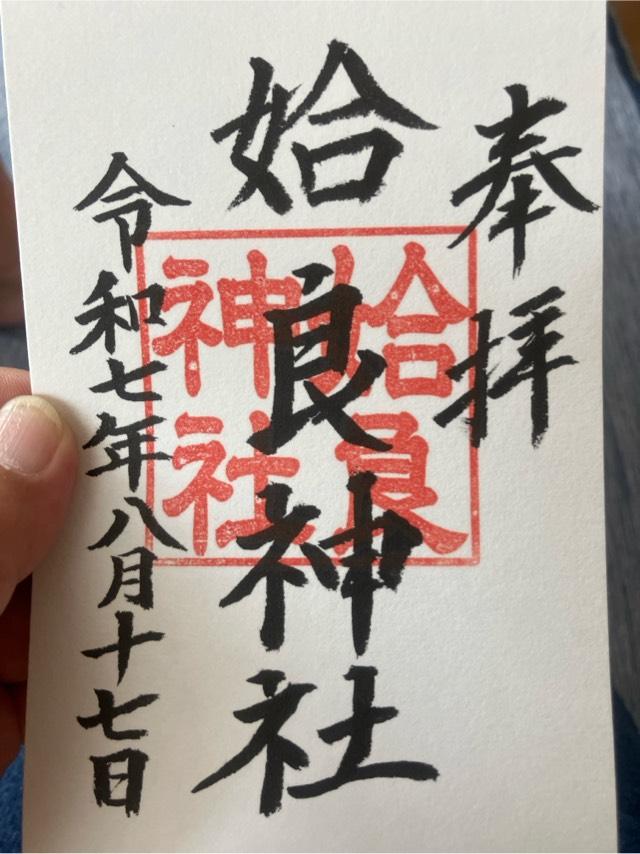 奉拝
姶良神社
姶良
神社
令和七年八月十七日